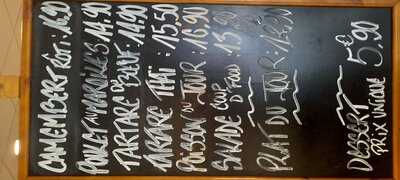 CAMEMBERT RÔTI : 16,90
POULET AU MAROILLES 14,90
TARTARE DE BŒUF : 14,90
TARTARE THAÏ : 15,50
POISSON DU JOUR : 16,90
SALADE COUP D'FOOD 13,90
PLAT DU JOUR :
DESSERT 5€,90
PRIX UNIQUE